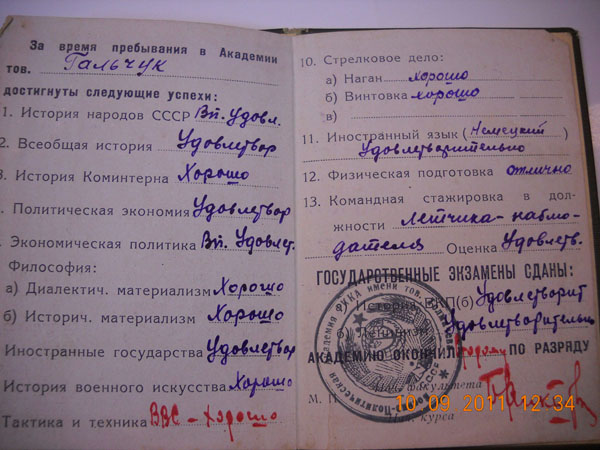 За время пребывания в Академии
тов. Гальчук
достигнуты следующие успехи:
1. История народов СССР Вп. Удовл.
2. Всеобщая история Удовлетвор
3. История Коминтерна Хорошо
. Политическая экономия Удовлетвор
. Экономическая политика Вп. Удовлет.
Философия:
а) Диалектич. материализм Хорошо
б) Историч. материализм Хорошо
Иностранные государства Удовлетвор
История военного искусства Хорошо
Тактика и техника ВВС - Хорошо
10. Стрелковое дело:
а) Наган хорошо
б) Винтовка хорошо
в)
11. Иностранный язык (Немецкий)
Удовлетворительно
12. Физическая подготовка отлично
13. Командная стажировка в дол-
жности Летчика-наблю-
дателя Оценка Удовлетв.
ГОСУДАРСТВЕННЫЕ ЭКЗАМЕНЫ СДАНЫ:
а) История ВКП(б) Удовлетворит
б) Ленинизм Удовлетворительно
АКАДЕМИЮ ОКОНЧИЛ ПО РАЗРЯДУ
М. П. Нач. факультета
Нач. курса
10 09 2011 12:34